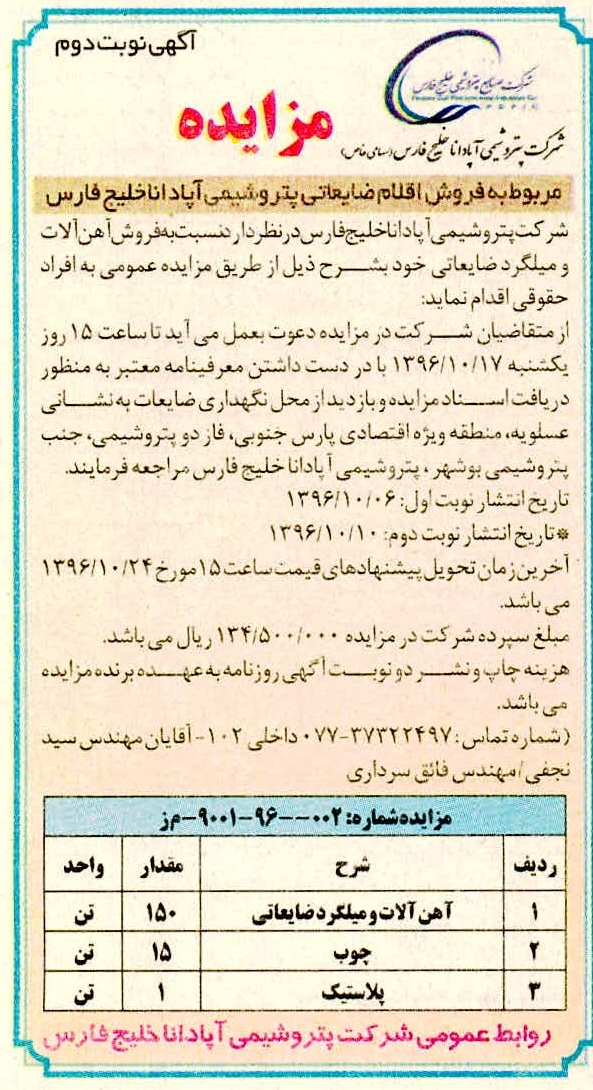 آگهی نوبت دوم
شرکت صنایع پتروشیمی خلیج فارس
P G P I C
شرکت پتروشیمی آپادانا خلیج فارس (سهامی خاص)
مزایده
مربوط به فروش اقلام ضایعاتی پتروشیمی آپادانا خلیج فارس
شرکت پتروشیمی آپادانا خلیج فارس در نظر دارد نسبت به فروش آهن آلات
و میلگرد ضایعاتی خود بشرح ذیل از طریق مزایده عمومی به افراد
حقوقی اقدام نماید:
از متقاضیان شرکت در مزایده دعوت بعمل می آید تا ساعت ۱۵ روز
یکشنبه ۱۳۹۶/۱۰/۱۷ با در دست داشتن معرفینامه معتبر به منظور
دریافت اسناد مزایده و بازدید از محل نگهداری ضایعات به نشانی
عسلویه، منطقه ویژه اقتصادی پارس جنوبی، فاز دو پتروشیمی، جنب
پتروشیمی بوشهر، پتروشیمی آپادانا خلیج فارس مراجعه فرمایند.
تاریخ انتشار نوبت اول: ۱۳۹۶/۱۰/۰۶
*تاریخ انتشار نوبت دوم: ۱۳۹۶/۱۰/۱۰
آخرین زمان تحویل پیشنهادهای قیمت ساعت ۱۵ مورخ ۱۳۹۶/۱۰/۲۴
می باشد.
مبلغ سپرده شرکت در مزایده ۱۳۴/۵۰۰/۰۰۰ ریال می باشد.
هزینه چاپ و نشر دو نوبت آگهی روزنامه به عهده برنده مزایده
می باشد.
(شماره تماس: ۳۷۳۲۲۴۹۷-۰۷۷ داخلی ۱۰۲- آقایان مهندس سید
نجفی/مهندس فائق سرداری
مزایده شماره: ۰۰۲--۹۶-۹۰۰۱-م ز
ردیف شرح مقدار واحد
۱ آهن آلات و میلگرد ضایعاتی ۱۵۰ تن
۲ چوب ۱۵ تن
۳ پلاستیک ۱ تن
روابط عمومی شرکت پتروشیمی آپادانا خلیج فارس